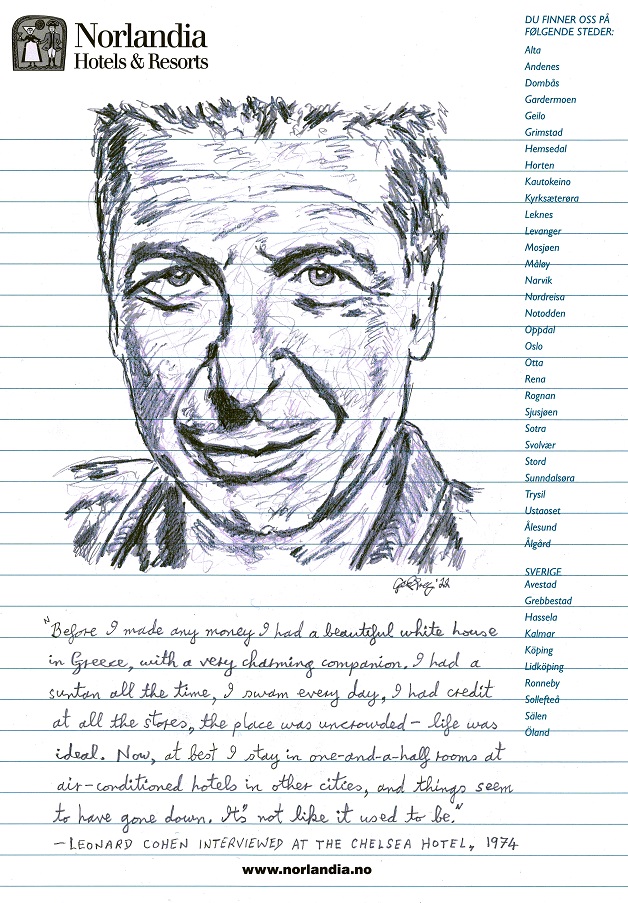 Norlandia
Hotels & Resorts
DU FINNER OSS PÅ
FØLGENDE STEDER:
Alta
Andenes
Dombås
Gardermoen
Geilo
Grimstad
Hemsedal
Horten
Kautokeino
Kyrksæterøra
Leknes
Levanger
Mosjøen
Måløy
Narvik
Nordreisa
Notodden
Oppdal
Oslo
Otta
Rena
Rognan
Sjusjøen
Sotra
Svolvær
Stord
Sunndalsøra
Trysil
Ustaoset
Ålesund
Ålgård
SVERIGE
Avestad
Grebbestad
Hassela
Kalmar
Köping
Lidköping
Ronneby
Sollefteå
Sälen
Öland
'22
"Before I made any money I had a beautiful white house
in Greece, with a very charming companion. I had a
suntan all the time, I swam every day, I had credit
at all the stores, the place was uncrowded – life was
ideal. Now, at best I stay in one-and-a-half rooms at
air-conditioned hotels in other cities, and things seem
to have gone down. It's not like it used to be."
– LEONARD COHEN INTERVIEWED AT THE CHELSEA HOTEL, 1974
www.norlandia.no